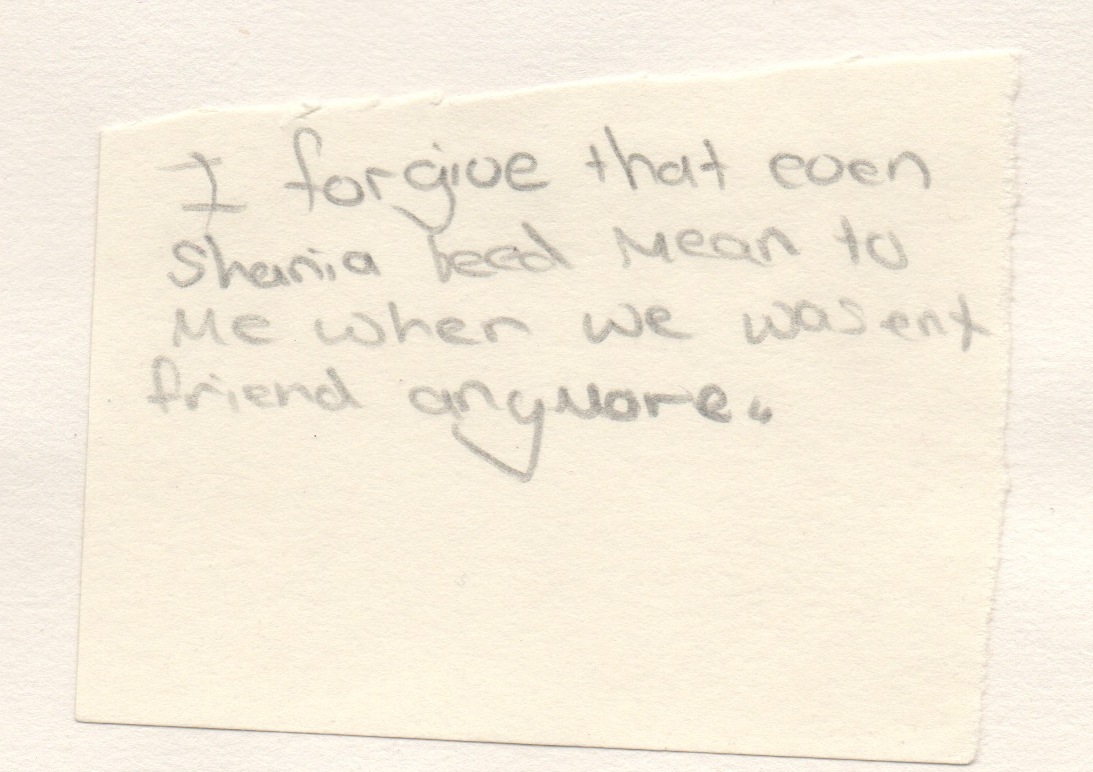 I forgive that even
Shania beed Mean to
Me when we wasent
friend anymore.